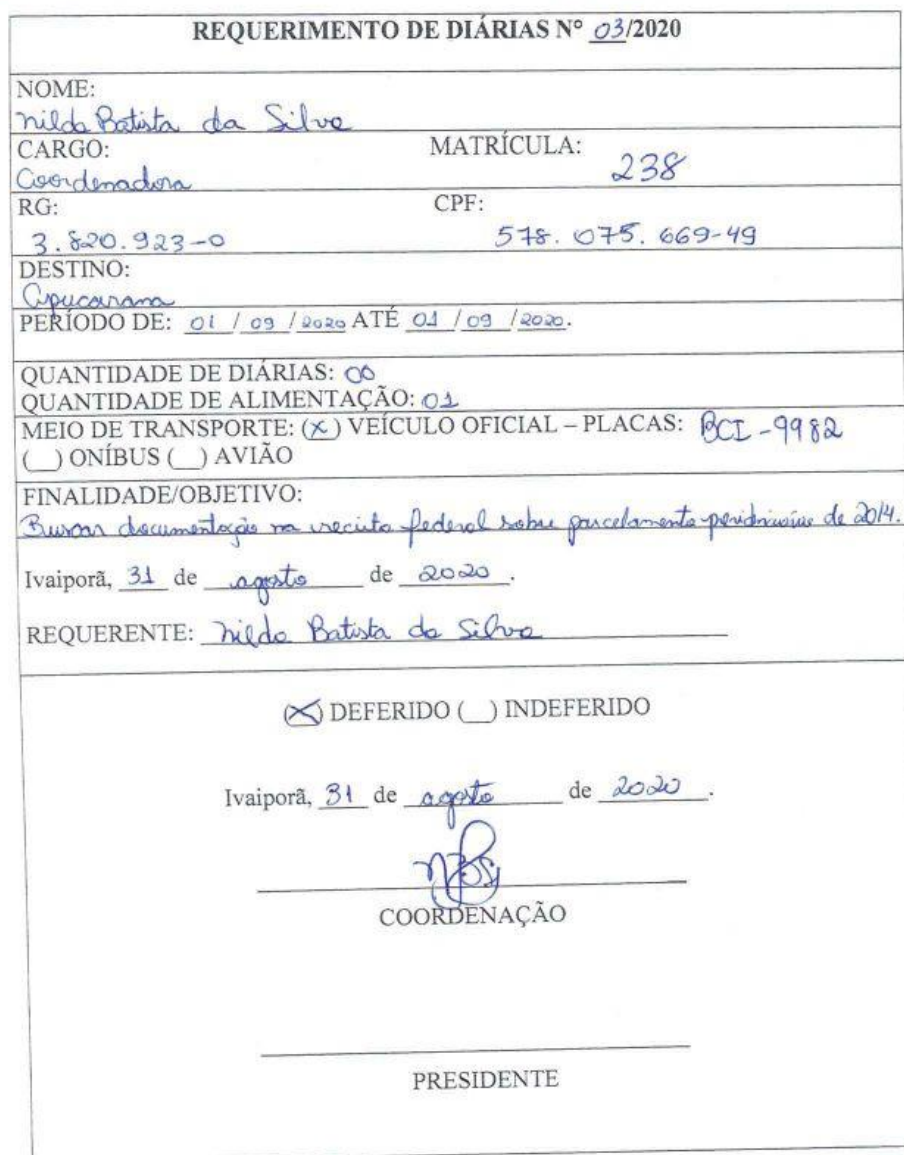 REQUERIMENTO DE DIÁRIAS N° 03/2020
NOME:
Nilda Batista da Silva
CARGO: MATRÍCULA:
Coordenadora 238
RG: CPF:
3.820.923-0 578.075.669-49
DESTINO:
Apucarana
PERÍODO DE: 01 / 09 / 2020 ATÉ 01 / 09 / 2020.
QUANTIDADE DE DIÁRIAS: 00
QUANTIDADE DE ALIMENTAÇÃO: 01
MEIO DE TRANSPORTE: (X) VEÍCULO OFICIAL – PLACAS: BCI-9982
(__) ONÍBUS (__) AVIÃO
FINALIDADE/OBJETIVO:
Buscar documentação na receita federal sobre parcelamento de 2014.
Ivaiporã, 31 de agosto de 2020.
REQUERENTE: Nilda Batista da Silva
(X) DEFERIDO (__) INDEFERIDO
Ivaiporã, 31 de agosto de 2020.
COORDENAÇÃO
PRESIDENTE